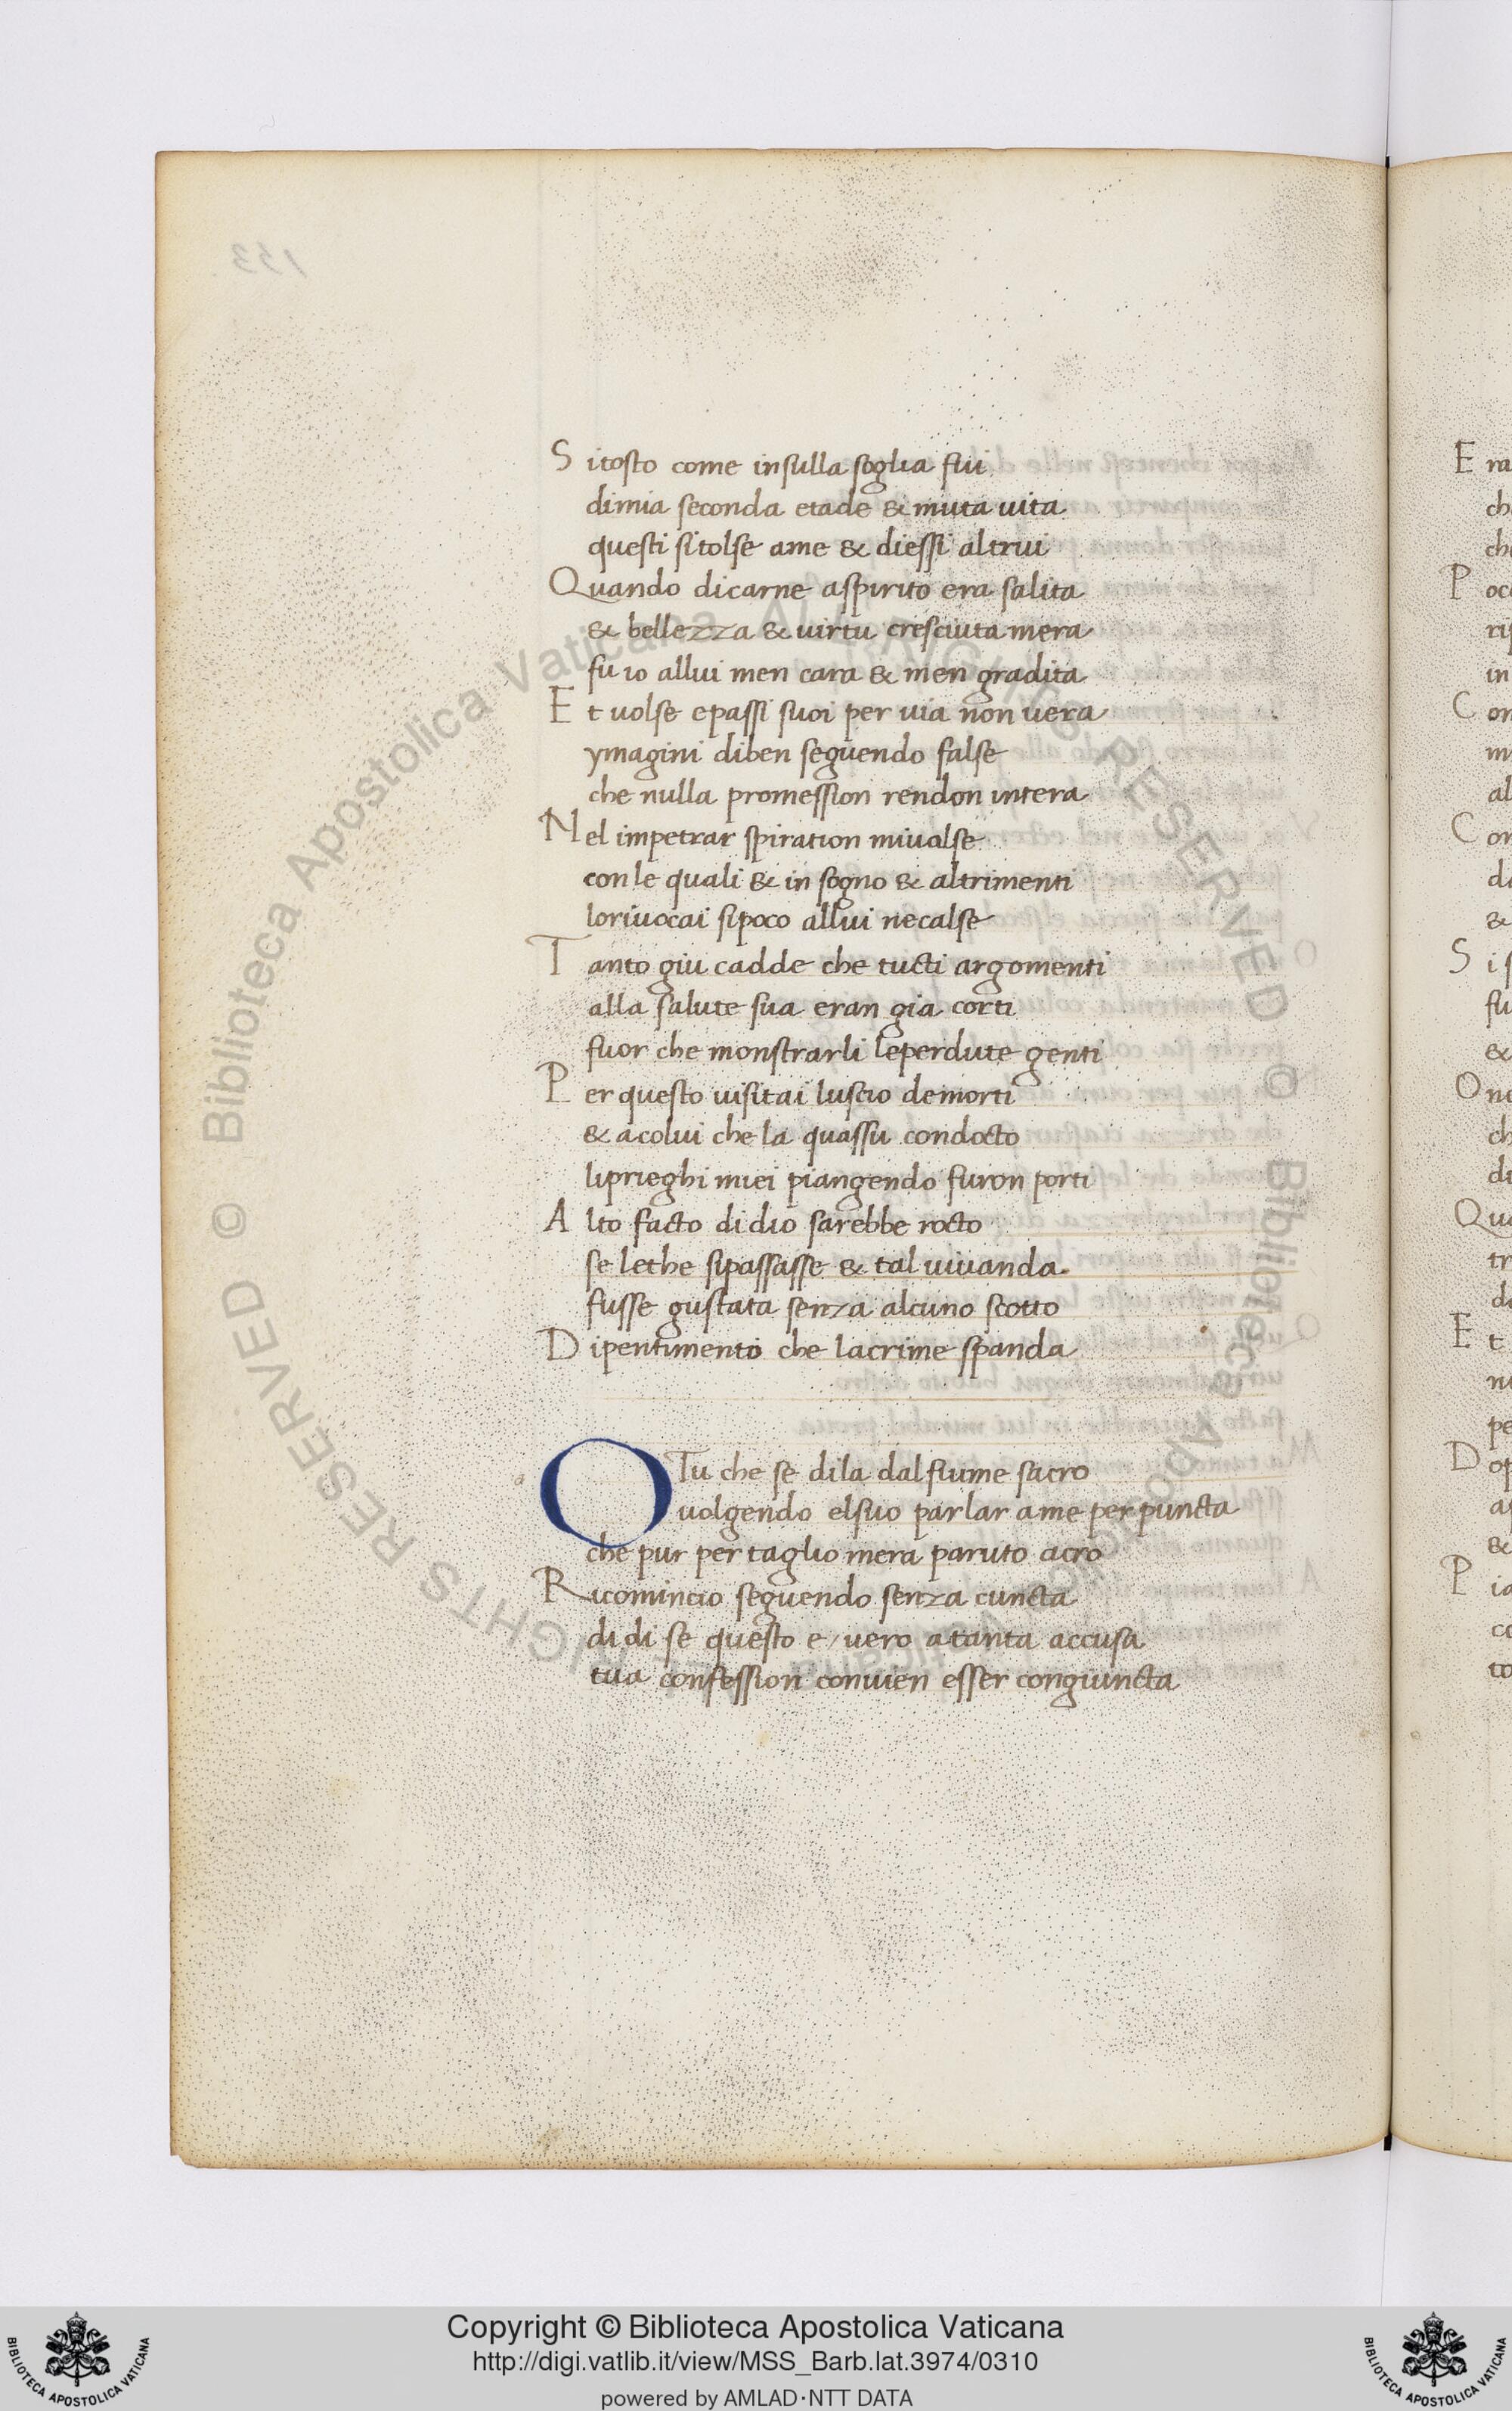 Sitosto come insulla soglia fui
dimia seconda etade & muta uita
questi sitolse ame & diessi altrui
Quando dicarne aspirito era salita
& bellezza & uirtu cresciuta mera
fu io allui men cara & men gradita
Et uolse epassi suoi per uia non uera
ymagini diben seguendo false
che nulla promession rendon intera
Nel impetrar spiration miualse
con le quali & in sogno & altrimenti
loriuocai sipoco allui necalse
Tanto giu cadde che tucti argomenti
alla salute sua eran gia corti
fuor che monstrarli leperdute genti
Per questo uisitai luscio demorti
& acolui che la quassu condocto
liprieghi miei piangendo furon porti
Alto facto di dio sarebbe rocto
se lethe sipassasse & tal uiuanda
fusse gustata senza alcuno scotto
Dipentimento che lacrime spanda
O Tu che se dila dal fiume sacro
uolgendo elsuo parlar ame per puncta
che pur per taglio mera paruto acro
Ricomincio seguendo senza cuncta
di di se questo e/uero atanta accusa
tua confession conuien esser congiuncta
133
© Biblioteca Apostolica Vaticana ALL RIGHTS RESERVED © Biblioteca Apostolica Vaticana ALL RIGHTS RESERVED
Copyright © Biblioteca Apostolica Vaticana
http://digi.vatlib.it/view/MSS_Barb.lat.3974/0310
powered by AMLAD·NTT DATA
BIBLIOTECA APOSTOLICA VATICANA
BIBLIOTECA APOSTOLICA VATICANA